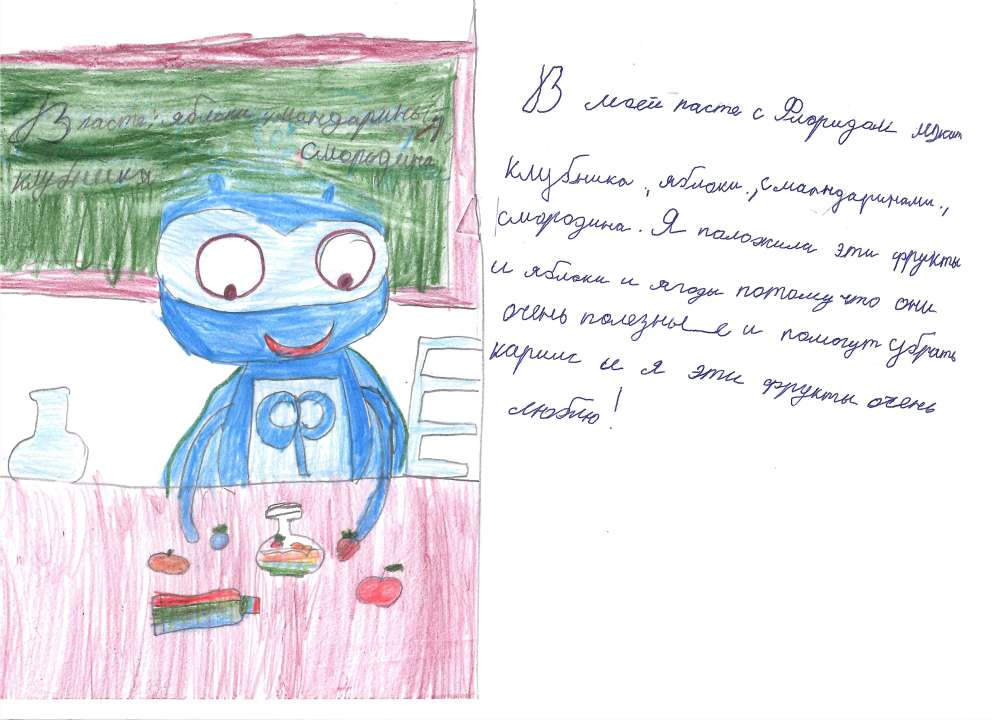 В пасте: яблоки, мандарины,
смородина,
клубника
В моей пасте с Флоридом
клубника, яблоки., с маандаринами.,
смородина. Я положила эти фрукты
и яблоки и ягоды потому что они
очень полезны е и помогут убрать
кариис и я эти фрукты очень
люблю!